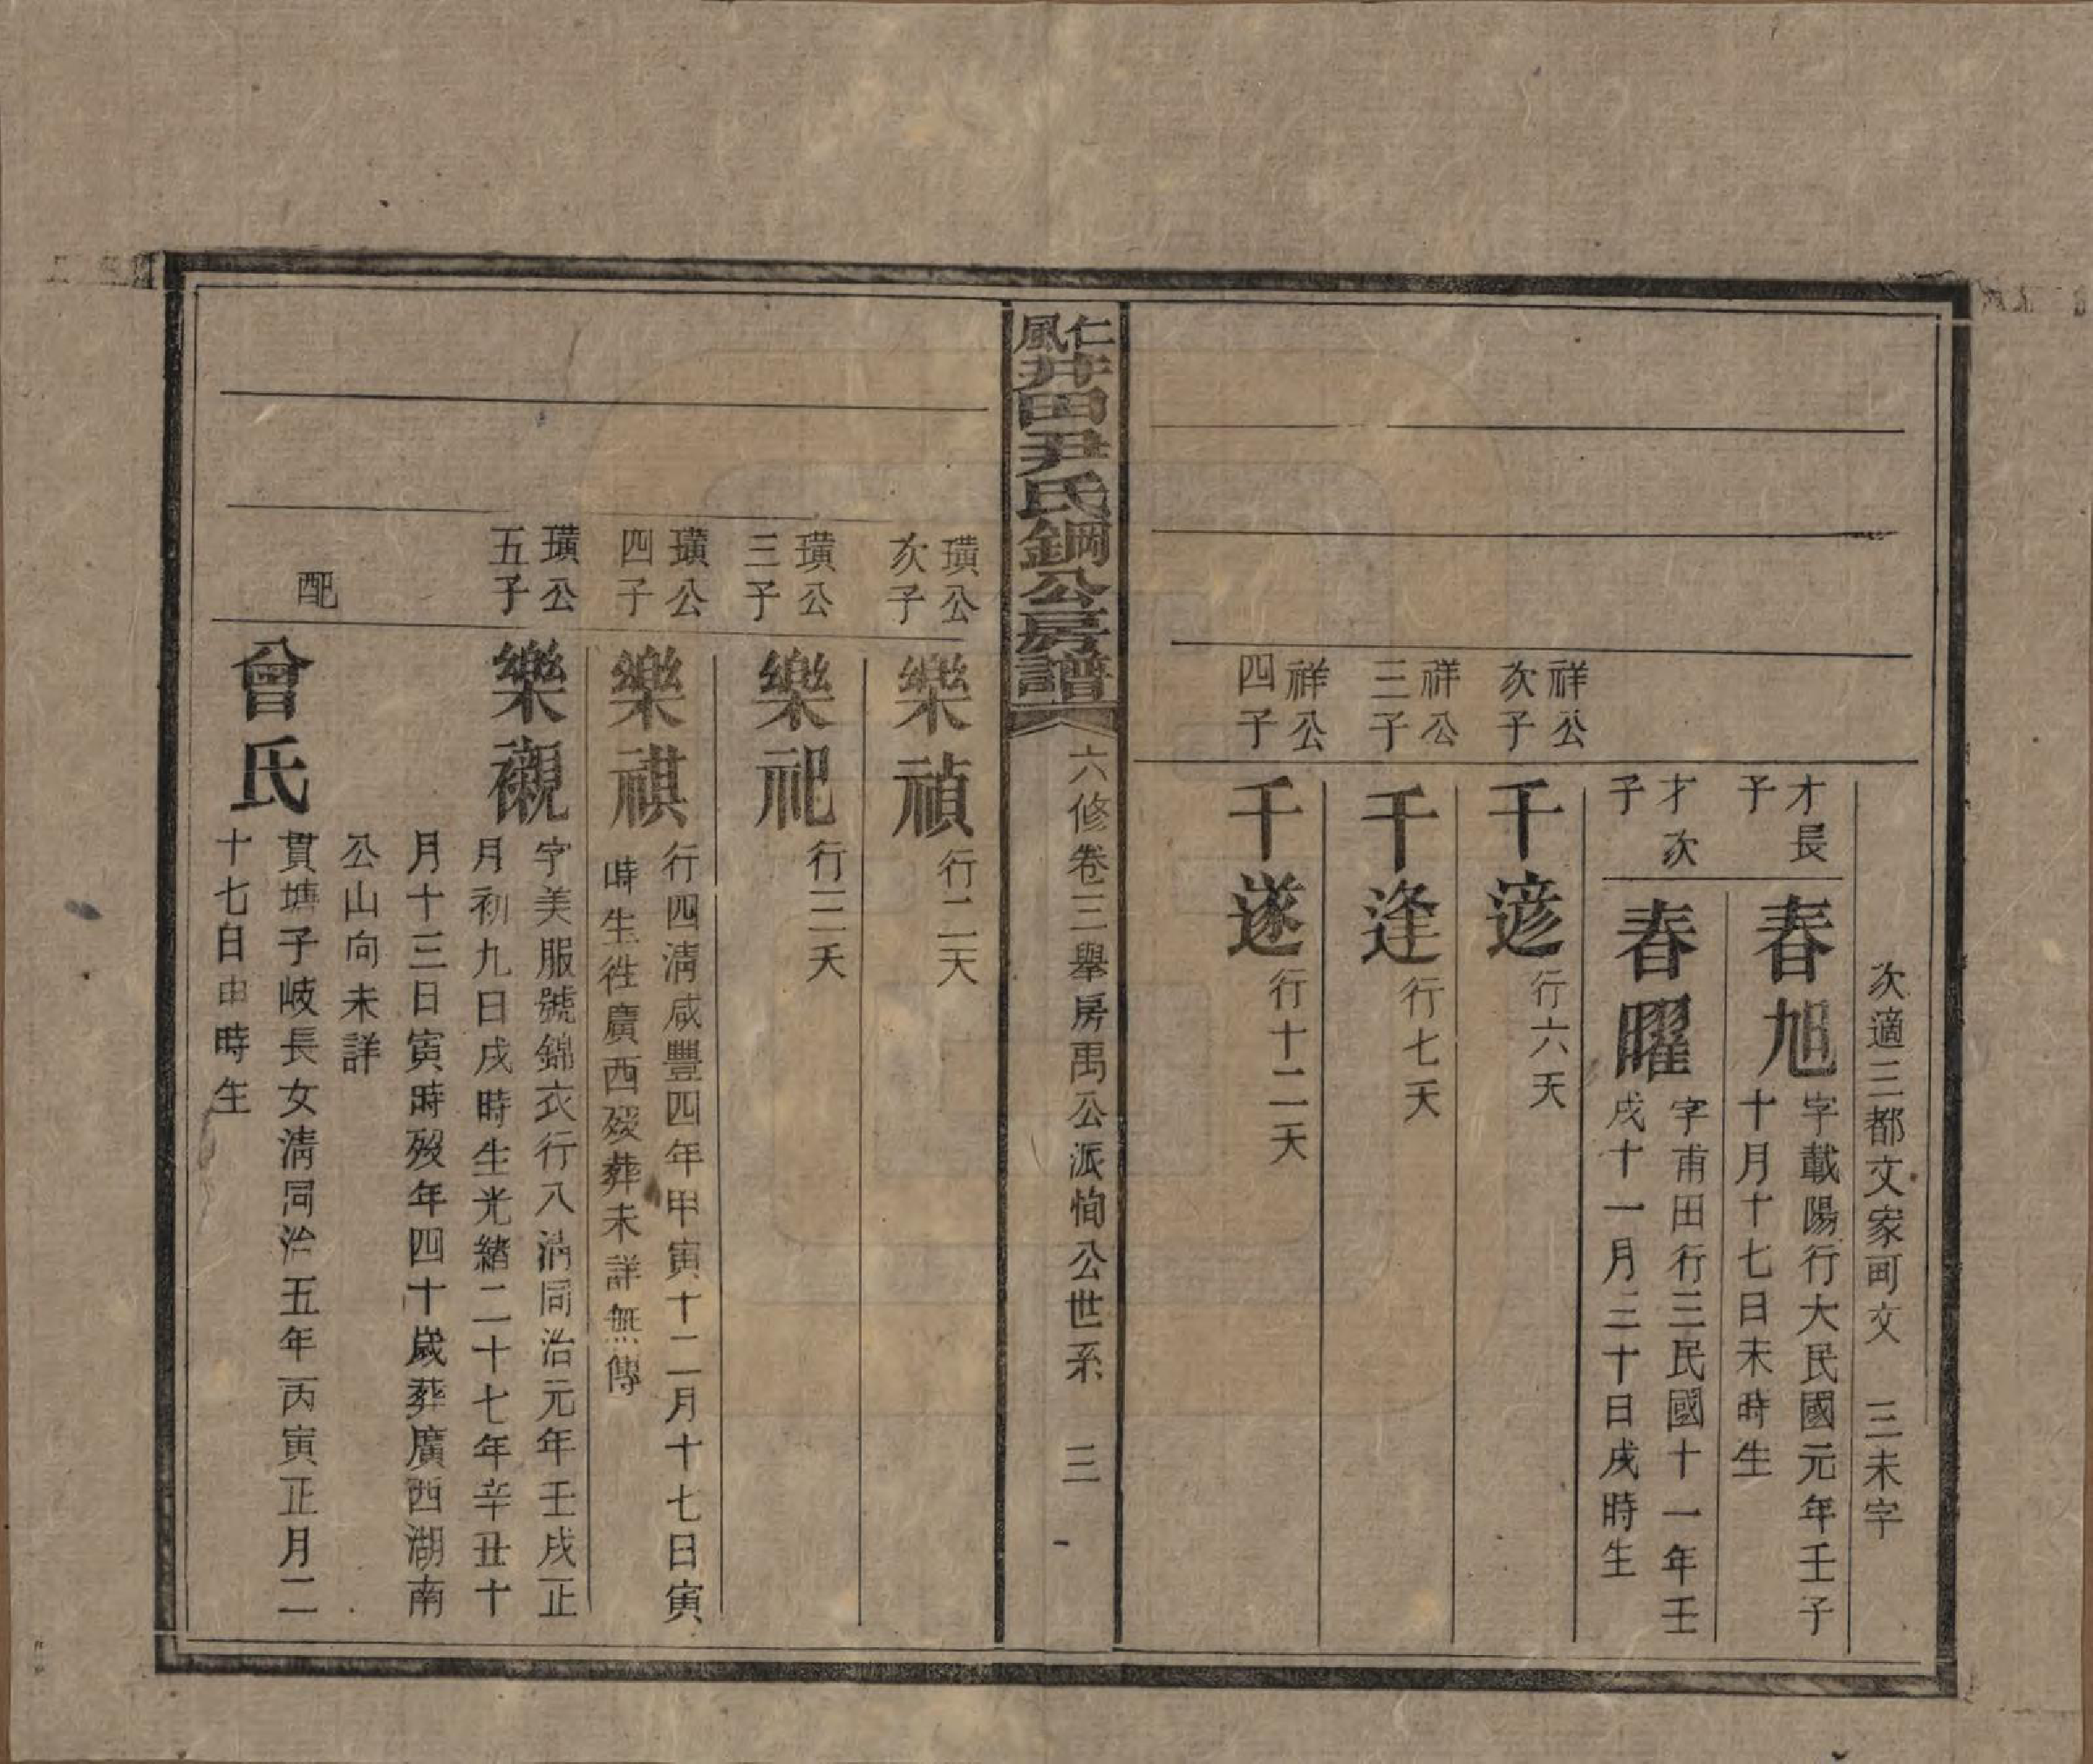 次適三都文家可文　三未字
才長
子
春旭
字載陽行大民國元年壬子
十月十七日未時生
才次
子
春曜
字甫田行三民國十一年壬
戌十一月三十日戌時生
祥公
次子
千遃
行六夭
祥公
三子
千逢
行七夭
祥公
四子
千遂
行十二夭
仁風井田尹氏鋼公房譜
六修卷三舉房禹公派恂公世系　三
璜公
次子
樂禎
行二夭
璜公
三子
樂祀
行三夭
璜公
四子
樂祺
行四淸咸豐四年甲寅十二月十七日寅
時生徃廣西歿葬未詳無傳
璜公
五子
樂襯
字美服號錦衣行八淸同治元年壬戌正
月初九日戌時生光緖二十七年辛丑十
月十三日寅時歿年四十歲葬廣西湖南
公山向未詳
配
曾氏
貫塘子岐長女淸同治五年丙寅正月二
十七日申時生